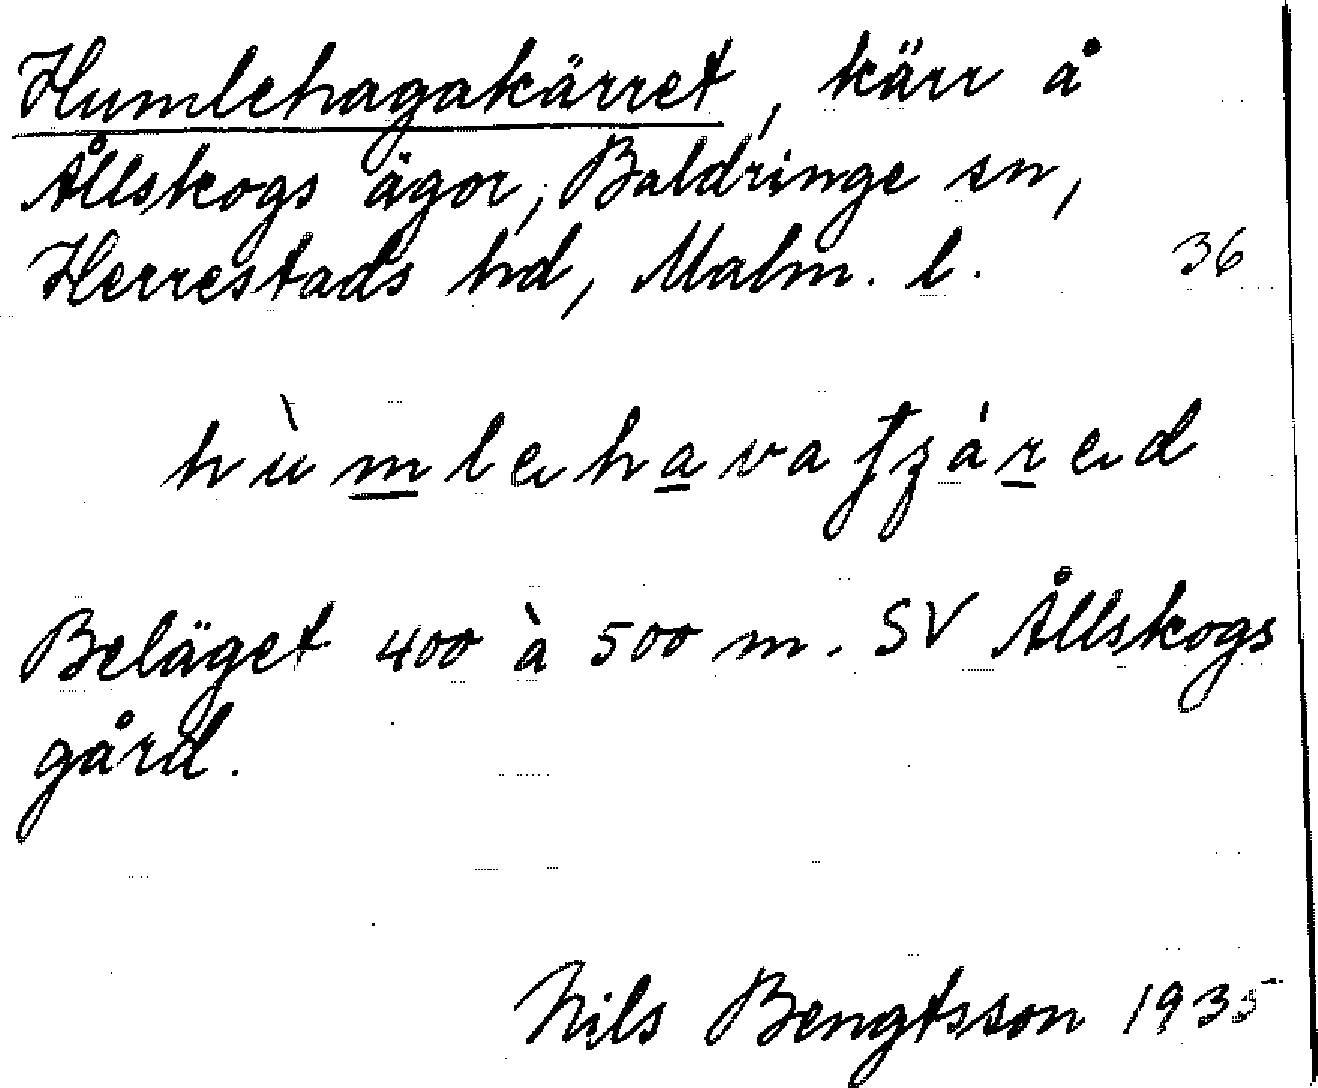 Humlehagakärret, kärr å
Ållskogs ägor, Baldringe sn,
Herrestads hd, Malm. l. 36
Beläget 400 à 500 m. SV Ållskogs
gård.
Nils Bengtsson 1935